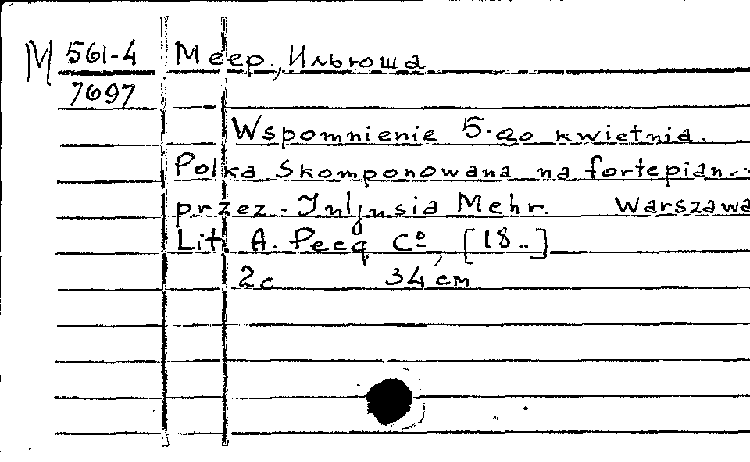 М 561-4 Меер, Ильюша
7697
Wspomnienie 5-go kwietnia.
Polka Skomponowana na fortepian..
przez - Juljusia Mehr. Warszawa
Lit. A. Pecq C°, [18..]
2c 34 cm